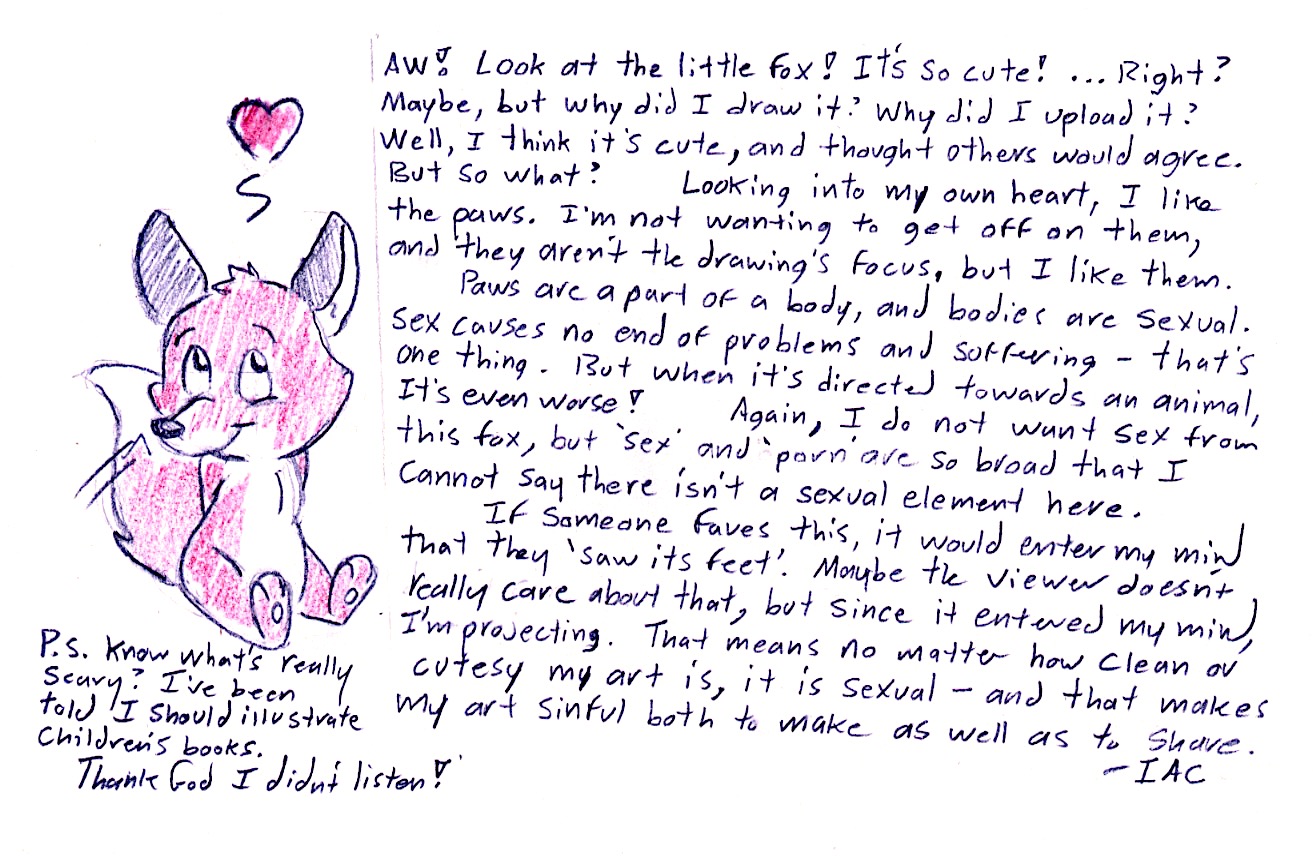 AW! Look at the little fox! It's so cute! ... Right?
Maybe, but why did I draw it? Why did I upload it?
Well, I think it's cute, and thought others would agree.
But so what? Looking into my own heart, I like
the paws. I'm not wanting to get off on them,
and they aren't the drawing's focus, but I like them.
Paws are a part of a body, and bodies are sexual.
Sex causes no end of problems and suffering - that's
one thing. But when it's directed towards an animal,
It's even worse! Again, I do not want sex from
this fox, but 'sex' and 'porn' are so broad that I
cannot say there isn't a sexual element here.
If someone faves this, it would enter my mind
that they 'saw its feet'. Maybe the viewer doesn't
really care about that, but since it entered my mind,
I'm projecting. That means no matter how clean or
cutesy my art is, it is sexual - and that makes
my art sinful both to make as well as to share.
- IAC
P.S. Know what's really
scary? I've been
told I should illustrate
children's books.
Thank God I didn't listen!